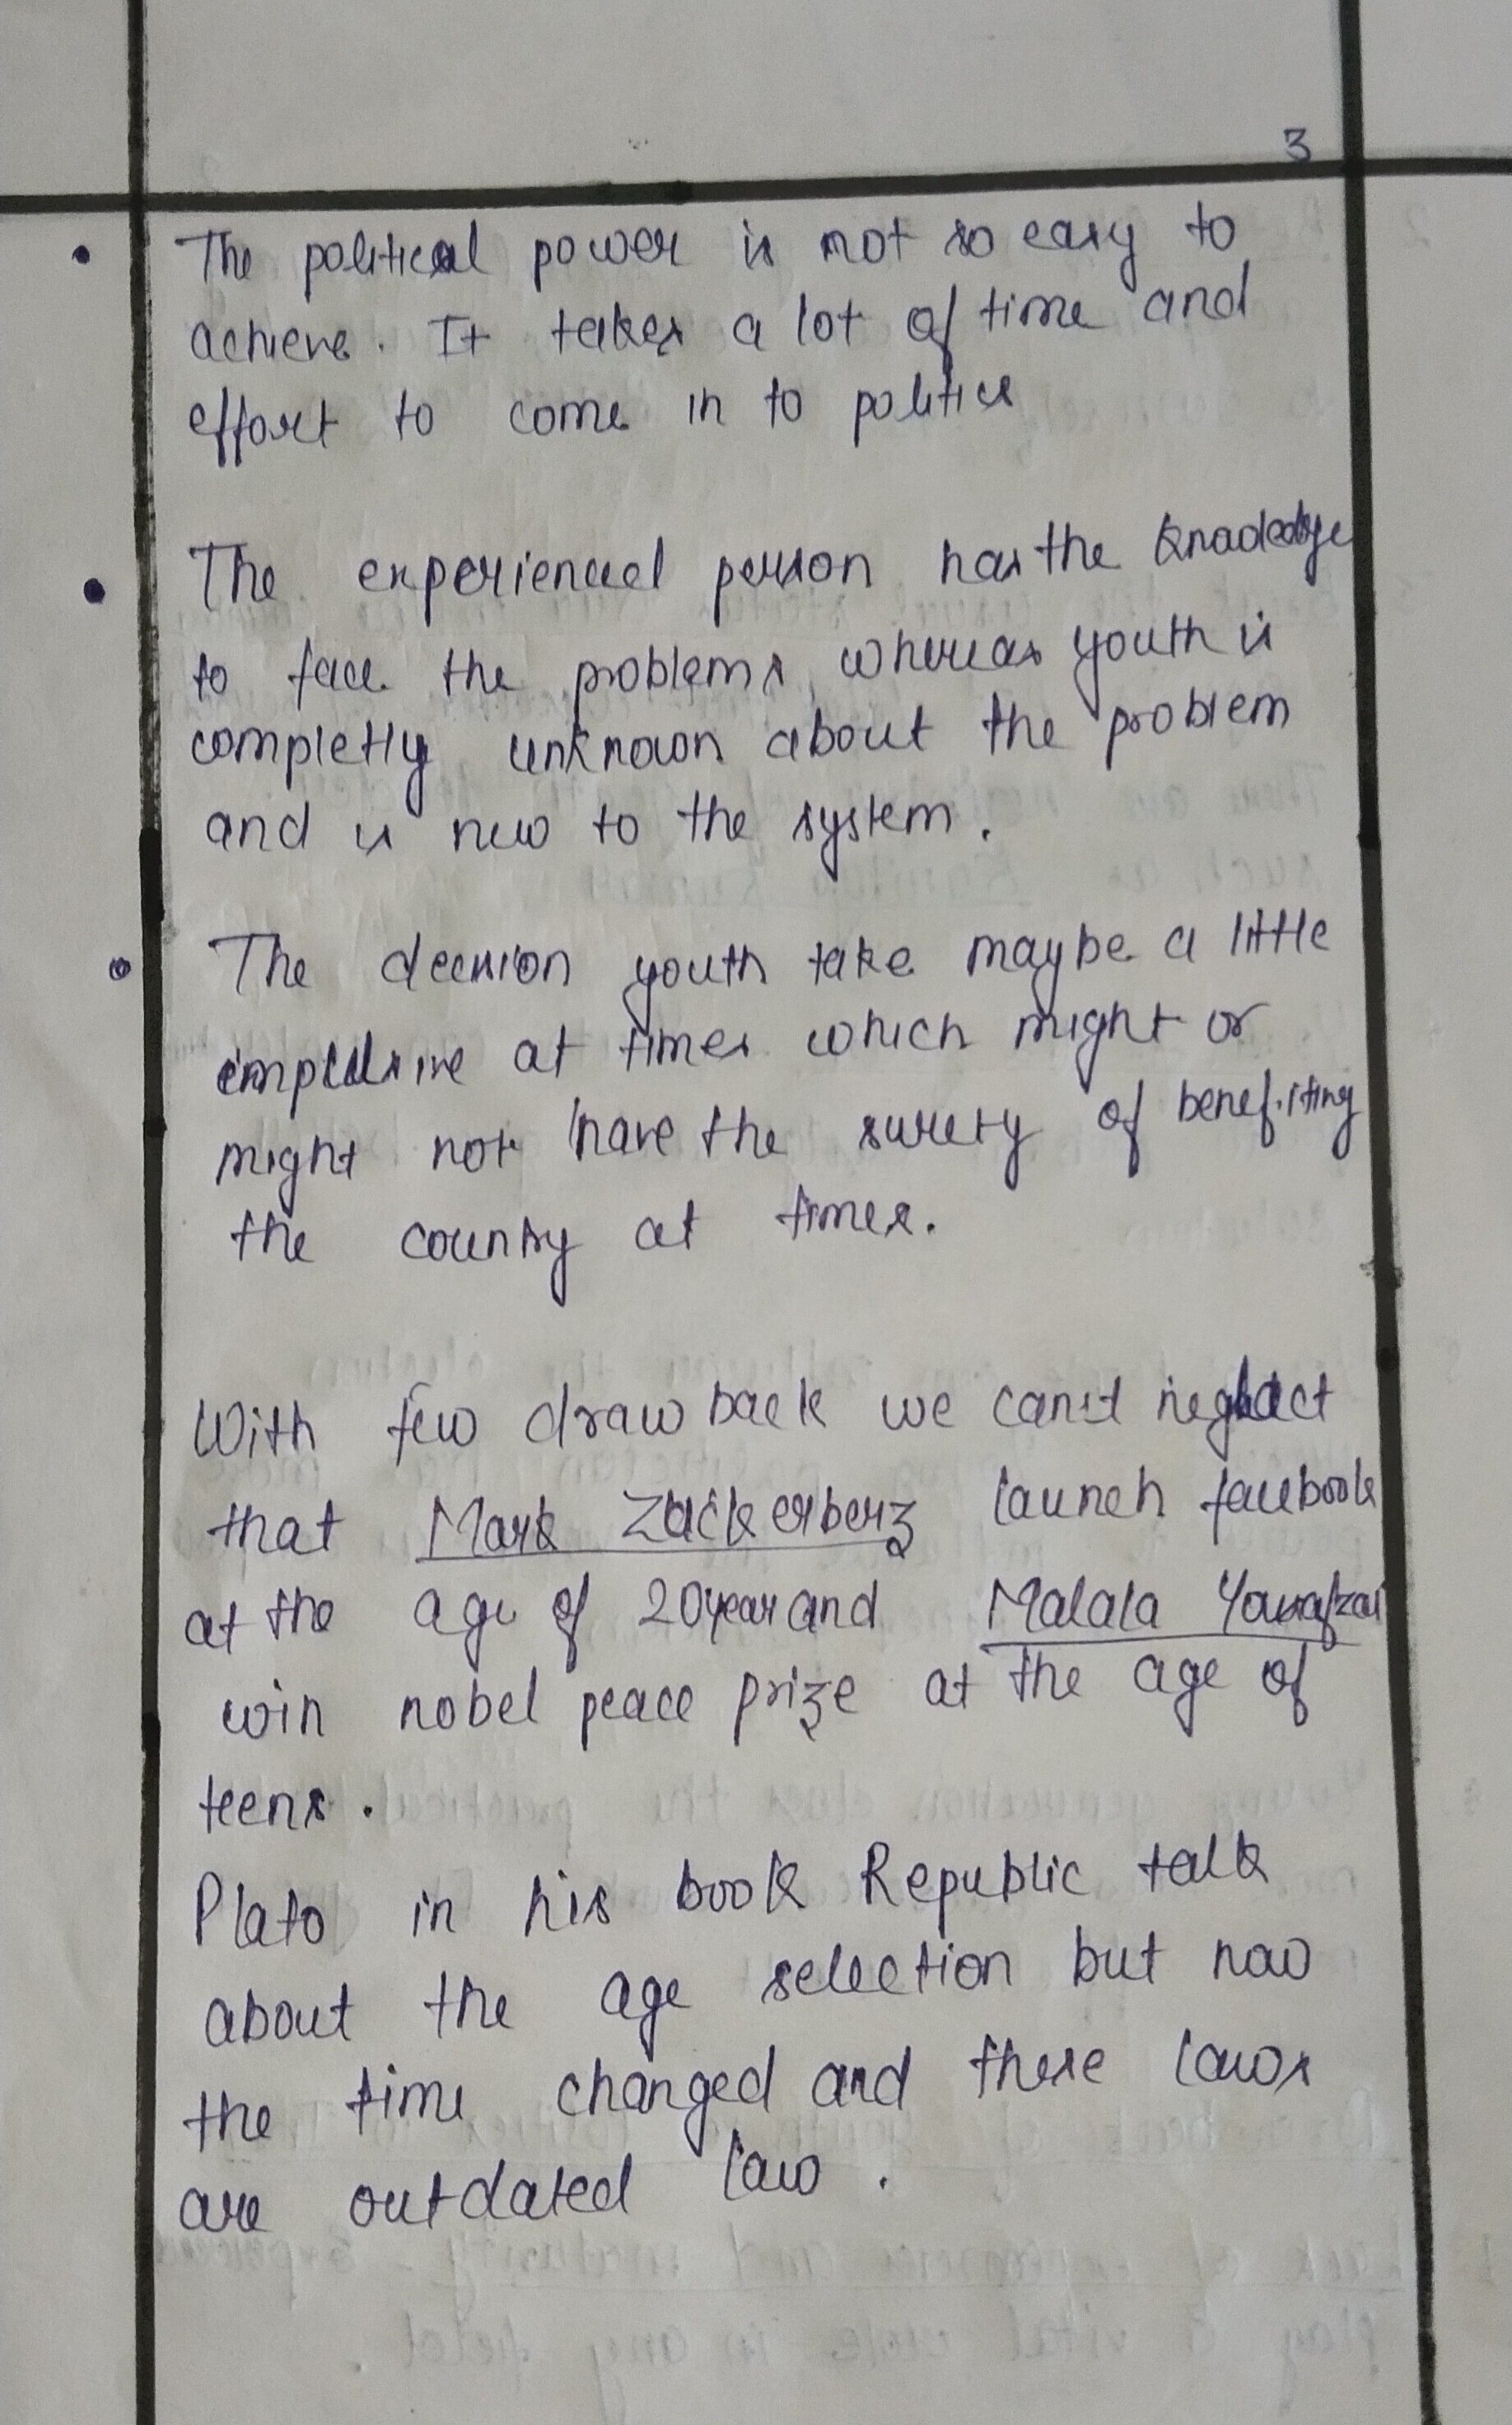 3
• The political power is not so easy to
achieve. It takes a lot of time and
effort to come in to politics
• The experienced person has the knowledge
to face the problems, whereas youth is
completly unknown about the problem
and is new to the system.
• The decision youth take maybe a little
impulsive at times which might or
might not have the surety of benefiting
the country at times.
With few drawback we can't neglect
that Mark Zackerberz launch facebook
at the age of 20year and Malala Yousafzai
win nobel peace prize at the age of
teens.
Plato in his book Republic talk
about the age selection but now
the time changed and these laws
are outdated law.